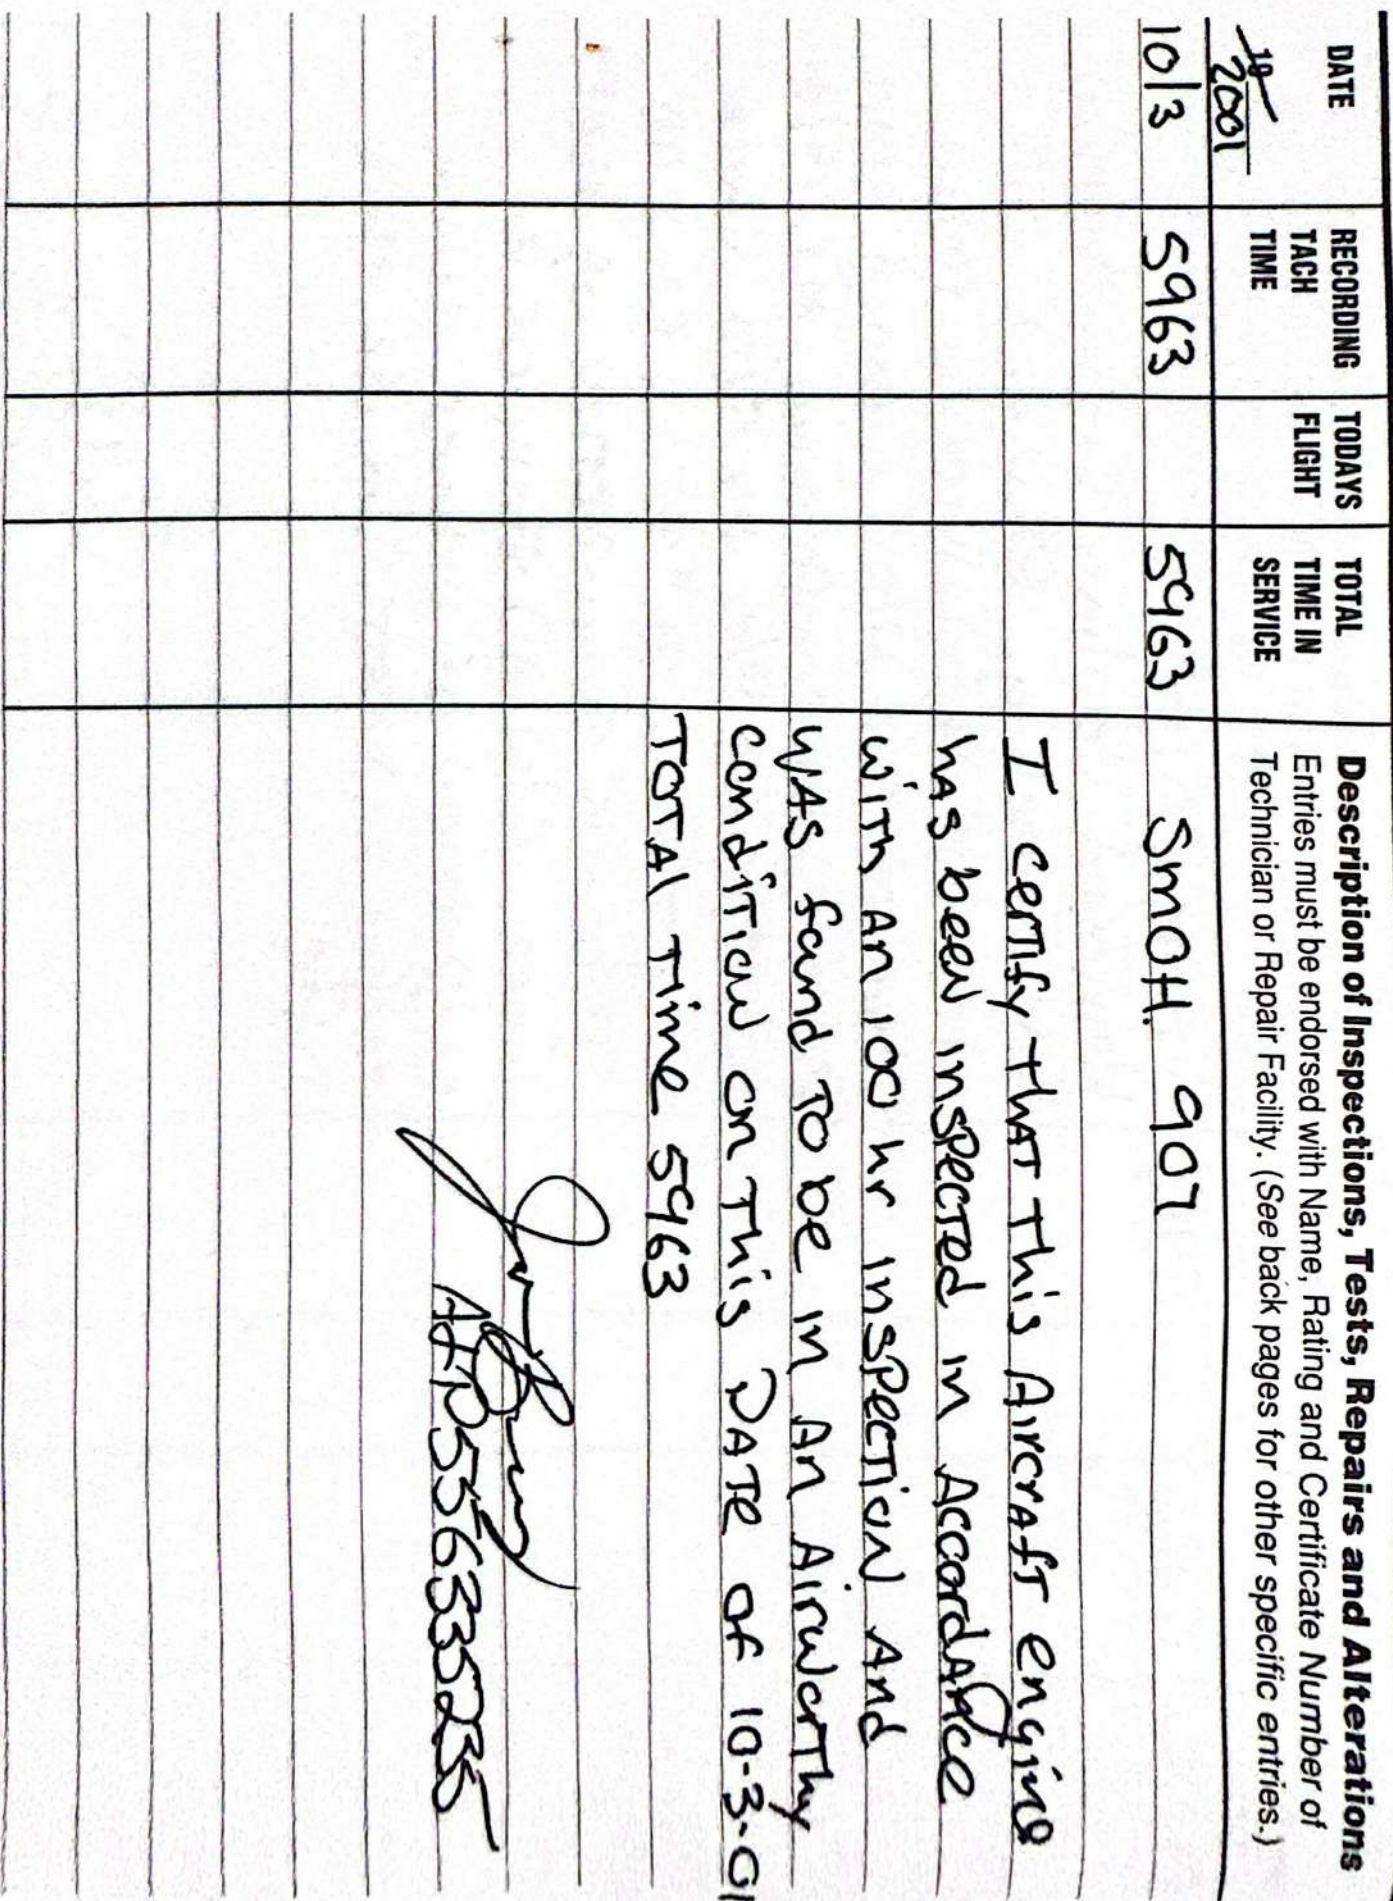 DATE RECORDING TACH TIME TODAYS FLIGHT TOTAL TIME IN SERVICE Description of Inspections, Tests, Repairs and Alterations
Entries must be endorsed with Name, Rating and Certificate Number of
Technician or Repair Facility. (See back pages for other specific entries.)
19 2001
10/3 5963 5963 SMOH. 907
I certify that this Aircraft engine
has been inspected in Accordance
with An 100 hr inspection And
WAS found To be in An Airworthy
condition on this DATE of 10-3-01
TOTAl Time 5963